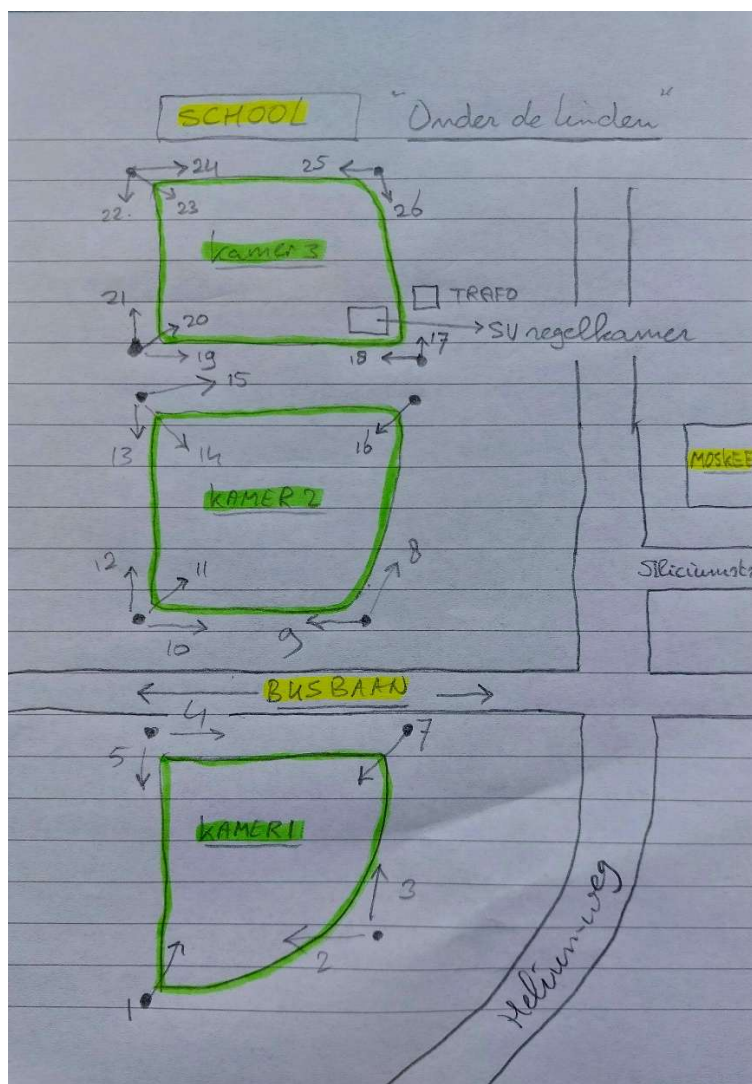 SCHOOL "Onder de linden"
24 25
22. 23 26
kamer 3
21 20 TRAFO
SV regelkamer
19 18 17
15
13 14 16
KAMER 2
MOSKEE
12 11 8
Siliciumstr
10 9
BUSBAAN
4 7
5
KAMER 1
3
2
Helium-weg
1